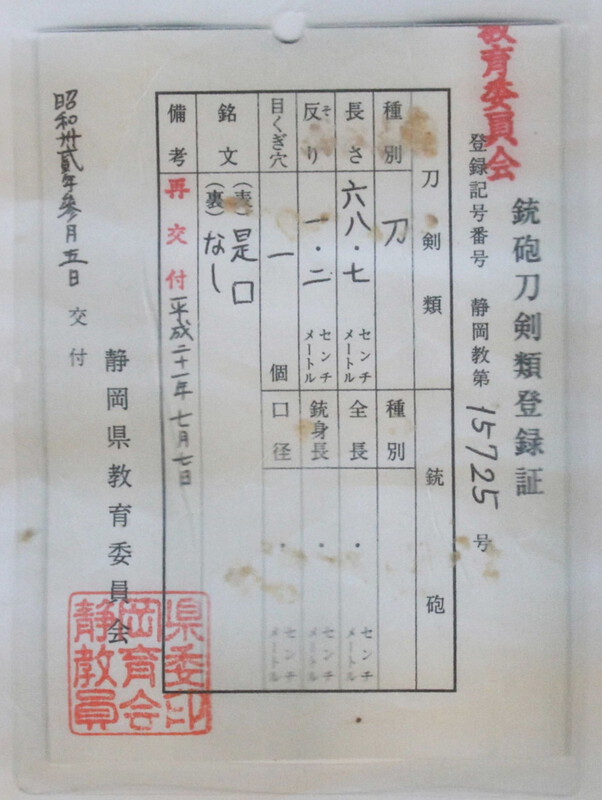 教育委員会
銃砲刀剣類登録証
登録記号番号 静岡教第 15725 号
刀剣類
銃砲
種別 刀
種別
長さ 六八・七 センチメートル
全長 ・ センチメートル
反り そ 一・二 センチメートル
銃身長 ・ センチメートル
目くぎ穴 一 個
口径 ・ センチメートル
銘文 (表) 是口
(裏) なし
備考 再交付 平成二十一年七月七日
昭和卅貳年參月五日 交付
静岡県教育委員会
県委印
岡育会
静教員